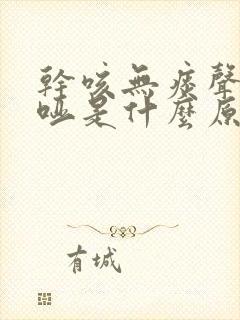 幹咳無痰聲
啞是什麼原
有城